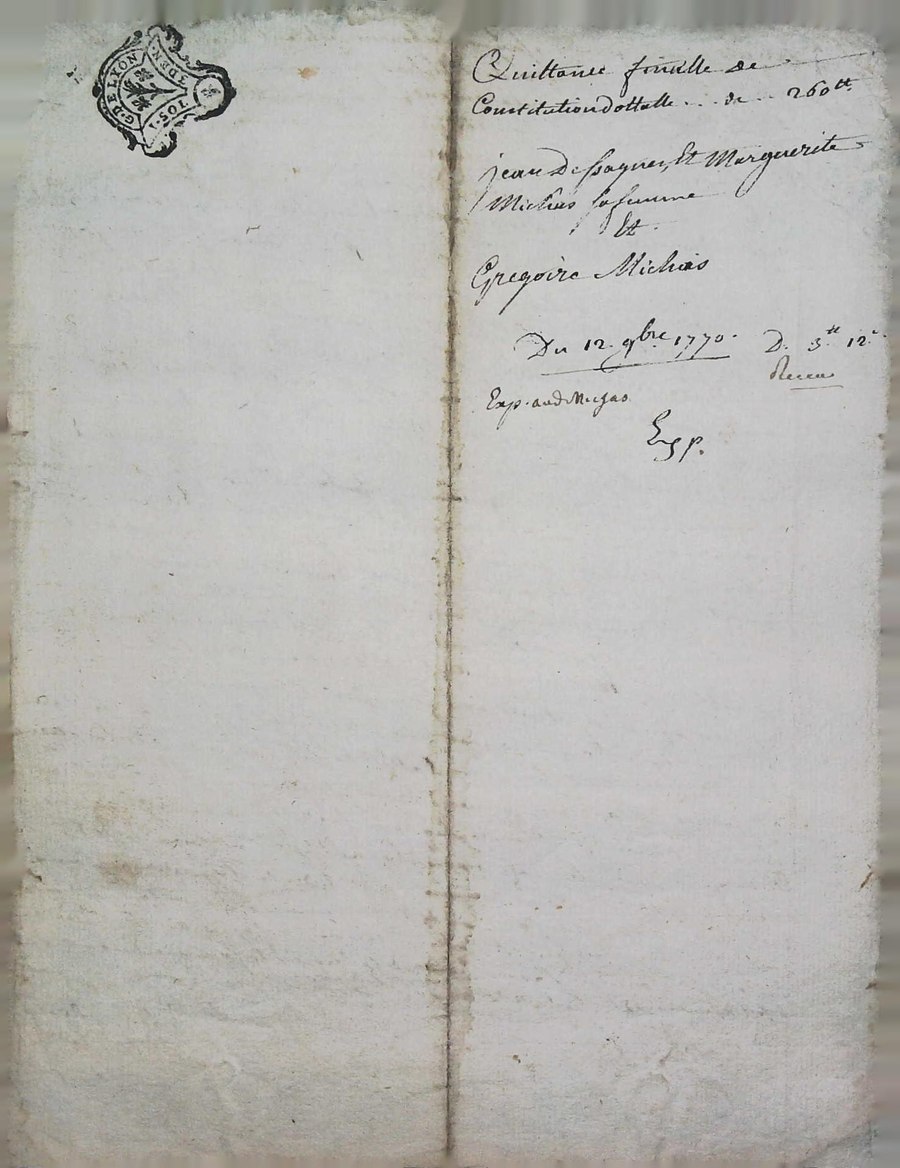 G. DE LYON
1. SOL
3 DEN.
Quittance finalle de
Constitution dottalle .. de .. 260tt
jean Et Marguerite
Michas sa femme
Et
Gregoire Michas
Du 12. 9bre 1770. D. 3tt 12
Exp.
Exp.